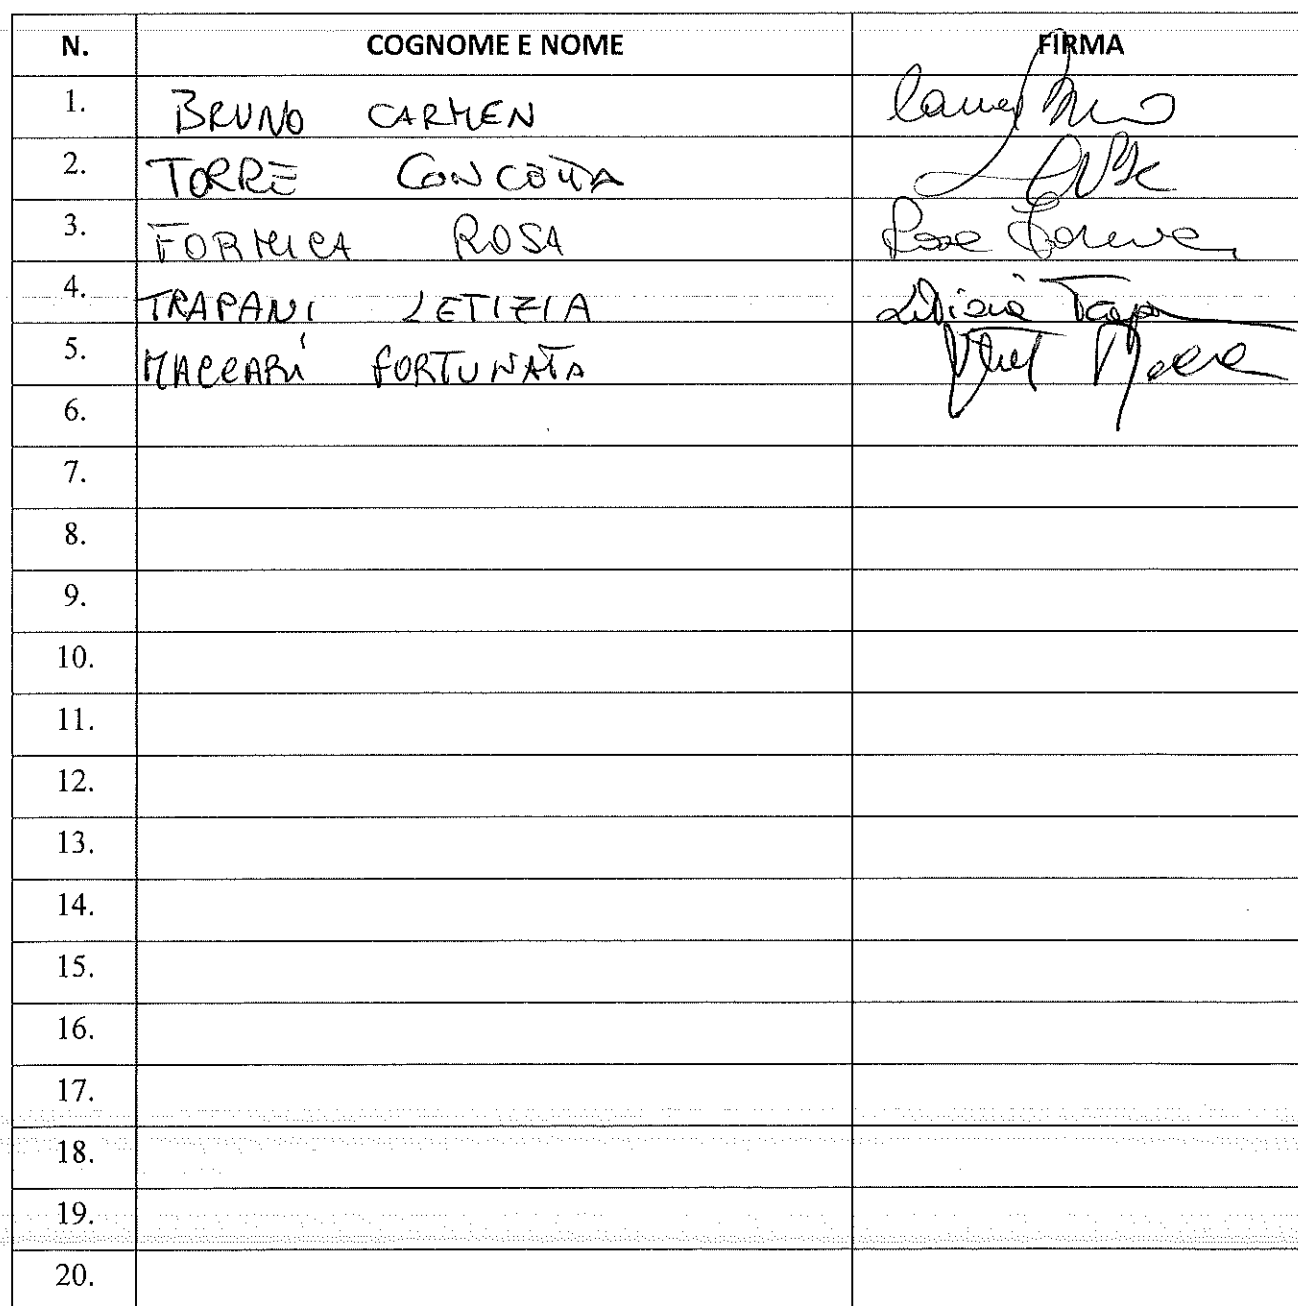 N. COGNOME E NOME FIRMA
1. BRUNO CARMEN
2. TORRE CONCETTA
3. FORMICA ROSA Rosa
4. TRAPANI LETIZIA Letizia Trap
5. MACCARI FORTUNATA
6.
7.
8.
9.
10.
11.
12.
13.
14.
15.
16.
17.
18.
19.
20.